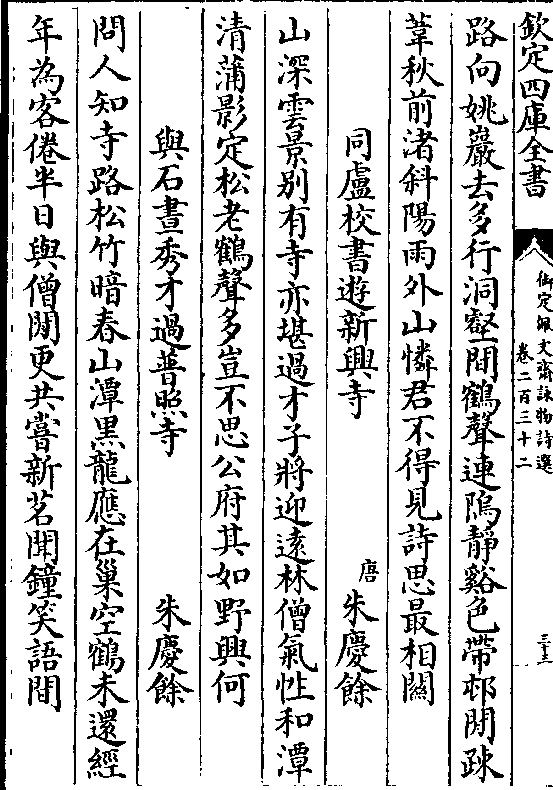 欽定四庫全書
御定佩文齋詠物詩選
卷二百三十二
三十三
路向姚巖去多行洞壑間鶴聲連隖靜谿色帶邨閒疎
葦秋前渚斜陽雨外山憐君不得見詩思最相關
同盧校書遊新興寺 唐 朱慶餘
山深雲景别有寺亦堪過才子將迎逺林僧氣性和潭
清蒲影定松老鶴聲多豈不思公府其如野興何
與石晝秀才過普照寺 朱慶餘
問人知寺路松竹暗春山潭黒龍應在巢空鶴未還經
年為客倦半日與僧閒更共嘗新茗聞鐘笑語閒